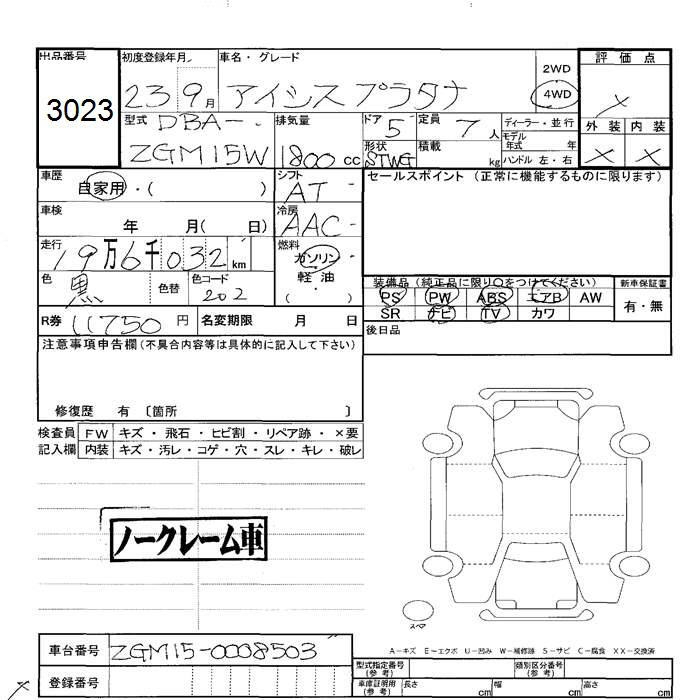 出品番号 初度登録年月 車名・グレード 評価点
3023 23 9月 アイシス プラタナ 2WD 4WD ×
外装 内装
× ×
型式 DBA- 排気量 ドア 5 定員 7人 ディーラー・並行
ZGM15W 1800 cc 形状 STWG 積載 kg モデル年式 年
ハンドル 左・右
車歴 自家用・( ) シフト AT セールスポイント(正常に機能するものに限ります)
車検 年 月( 日) 冷房 AAC
走行 19万6千032 km 燃料 ガソリン
軽・油
( )
色 黒 色替 色コード 202
装備品(純正品に限り○をつけてください) 新車保証書
PS PW ABS エアB AW 有・無
SR ナビ TV カワ
R券 11750円 名変期限 月 日 後日品
注意事項申告欄(不具合内容等は具体的に記入して下さい)
修復歴 有 〔箇所 〕
検査員 FW キズ・飛石・ヒビ割・リペア跡・×要
記入欄 内装 キズ・汚レ・コゲ・穴・スレ・キレ・破レ
ノークレーム車
スペア
A−キズ E−エクボ U−凹み W−補修跡 S−サビ C−腐食 XX−交換済
車台番号 ZGM15-0008503
登録番号
型式指定番号(参考) 類別区分番号(参考)
車庫証明用(参考) 長さ cm 幅 cm 高さ cm
×